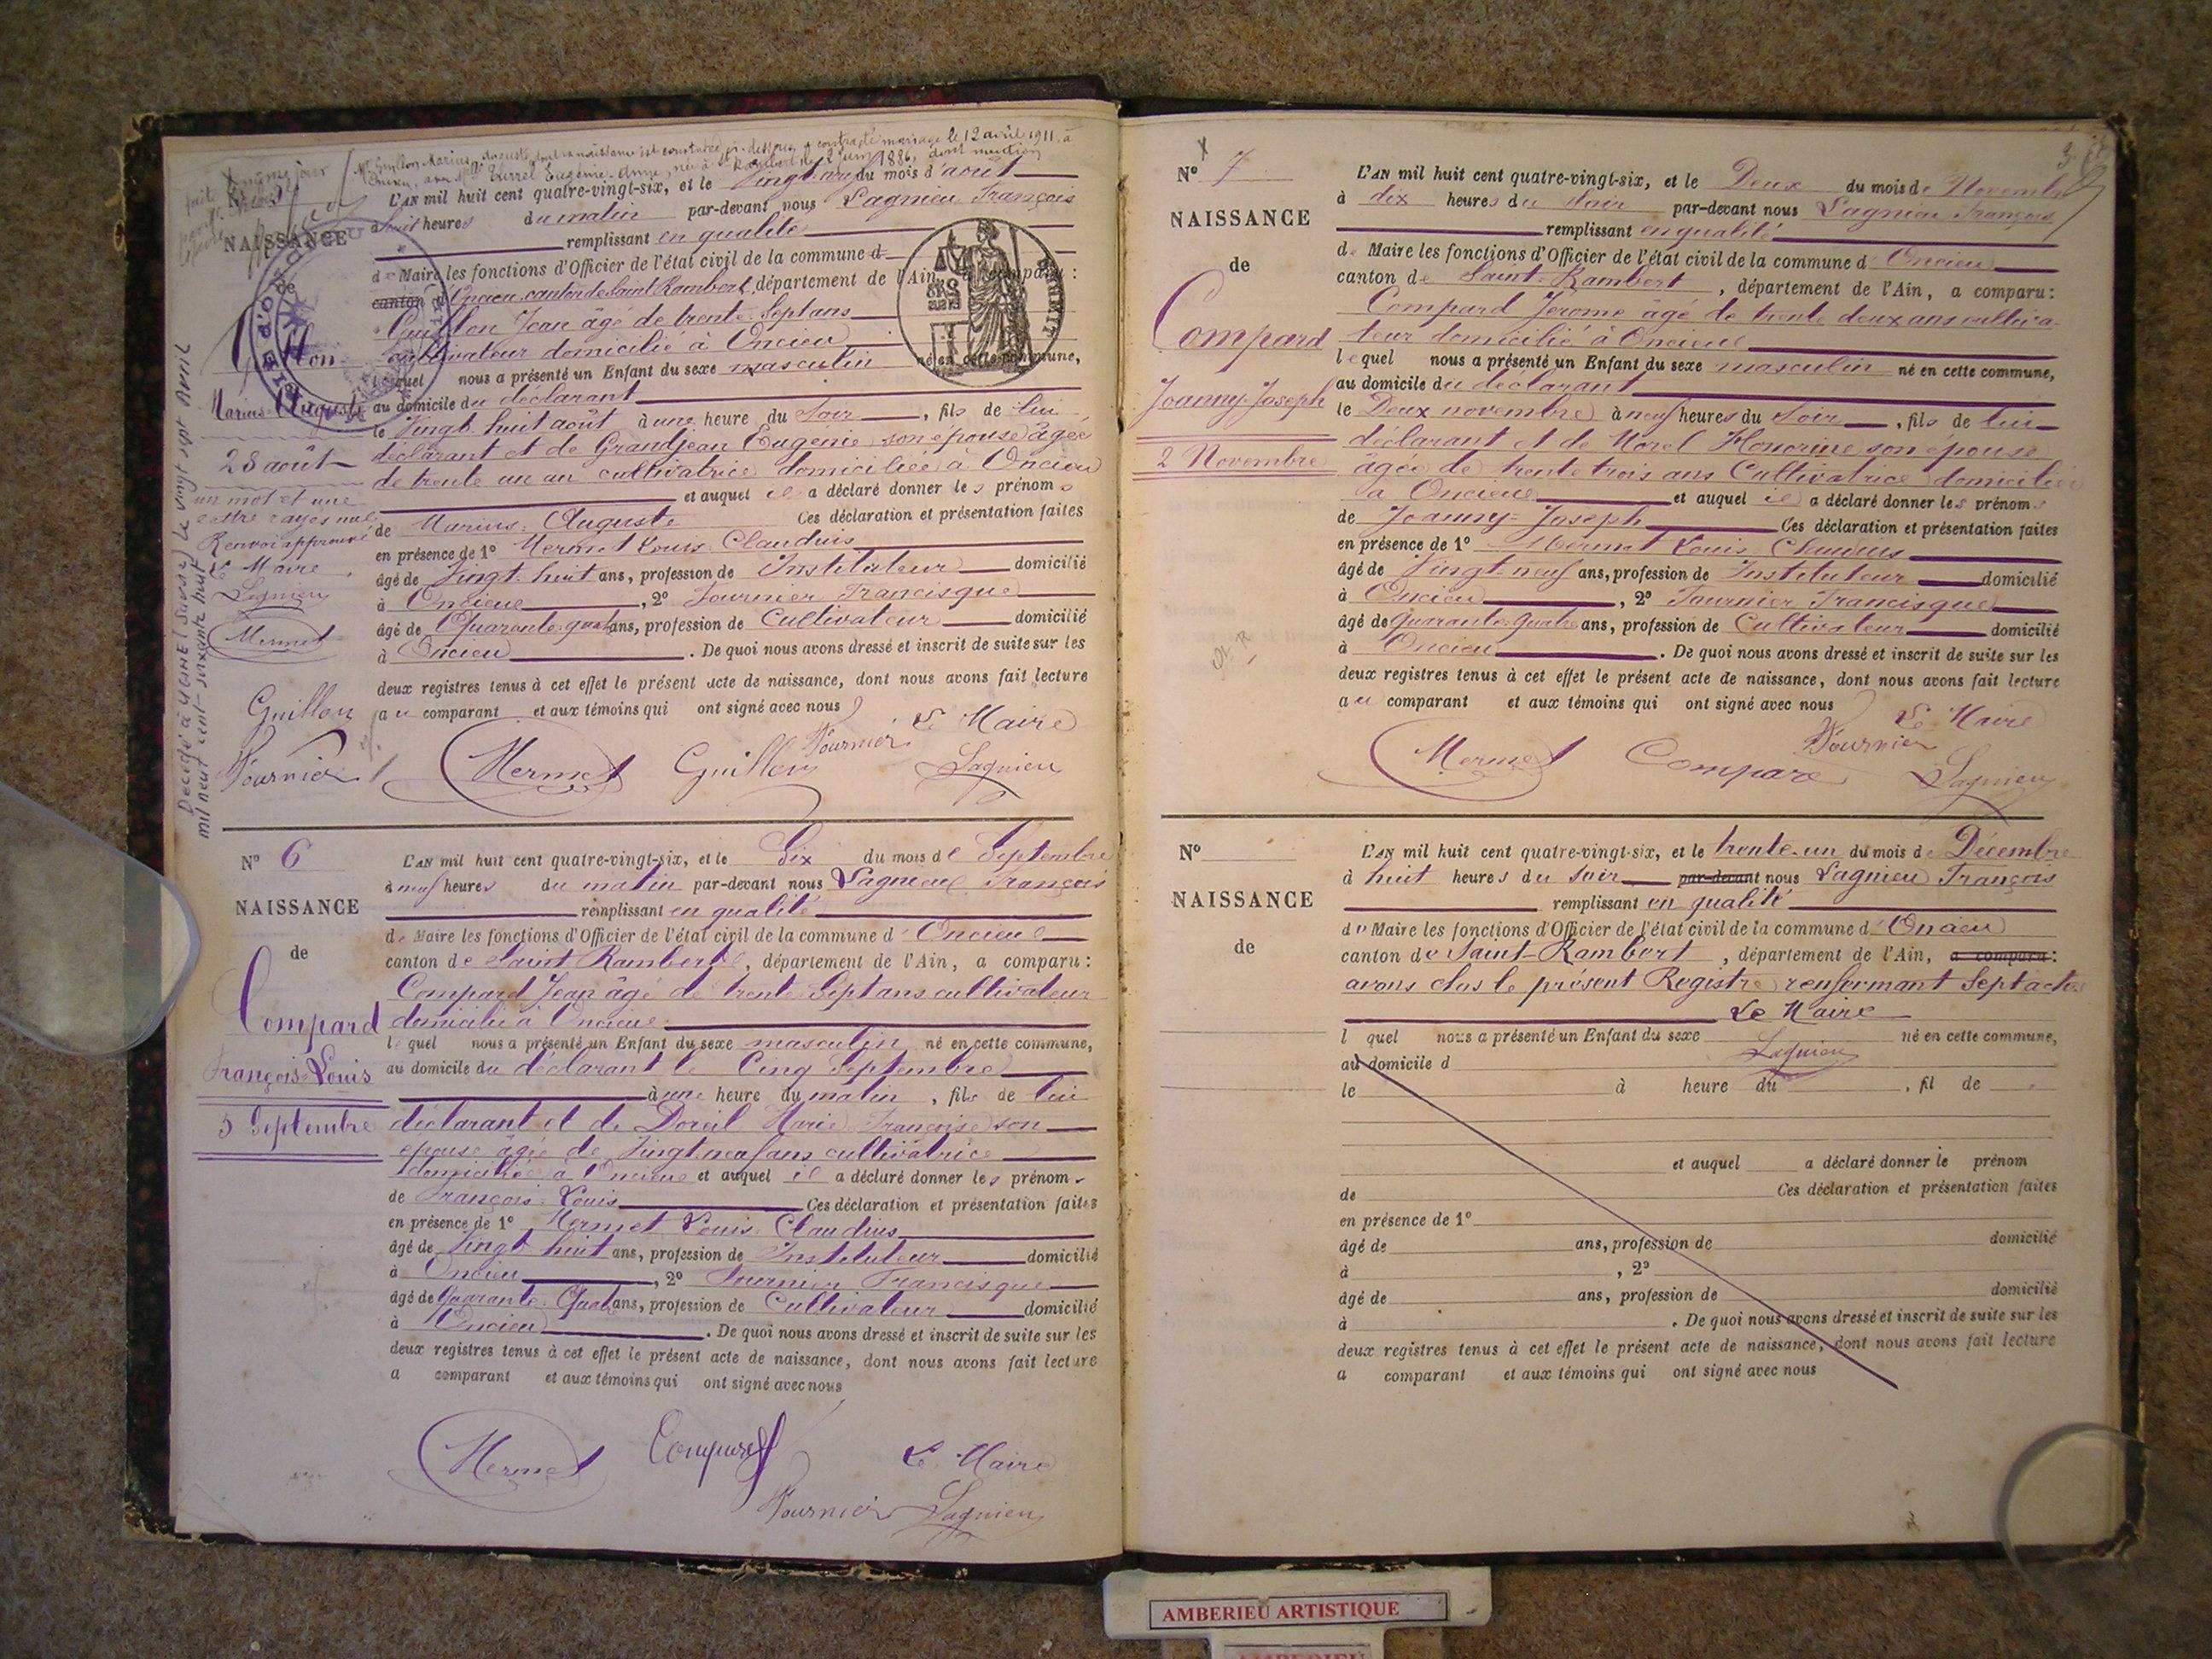 Mr Guillon Marius Auguste dont la naissance est constatée ci-dessous a contracté mariage le 12 avril 1911, à
Oncieu, avec Mlle Eugénie née à St Rambert le 2 juin 1886, dont mention
L'AN mil huit cent quatre-vingt-six, et le Vingt neuf du mois d'août
à huit heures du matin par-devant nous Lagnieu François
NAISSANCE
remplissant en qualité
de Maire les fonctions d'Officier de l'état civil de la commune d
canton d'Oncieu canton de Saint Rambert, département de l'Ain, a comparu :
de
Guillon Jean âgé de trente-Sept ans
Guillon
cultivateur domicilié à Oncieu
lequel nous a présenté un Enfant du sexe masculin né en cette commune,
Marius-Auguste
au domicile du déclarant
le Vingt-huit août à une heure du Soir, fils de lui
28 août
déclarant et de Grandjean Eugénie son épouse âgée
de trente un an cultivatrice domiciliée à Oncieu
et auquel il a déclaré donner les prénoms
de Marius-Auguste Ces déclaration et présentation faites
en présence de 1° Mermet Louis Claudius
âgé de Vingt-huit ans, profession de Instituteur domicilié
à Oncieu, 2° Fournier Francisque
âgé de Quarante-quatre ans, profession de Cultivateur domicilié
à Oncieu. De quoi nous avons dressé et inscrit de suite sur les
deux registres tenus à cet effet le présent acte de naissance, dont nous avons fait lecture
au comparant et aux témoins qui ont signé avec nous
un mot et une
lettre rayés nuls
Renvoi approuvé
Le Maire
Lagnieu
Mermet
Guillon
Fournier
Le Maire
Mermet Guillon Fournier Lagnieu
Décédé à UGINE (Savoie) le vingt sept Avril
mil neuf cent soixante huit
N° 6
L'AN mil huit cent quatre-vingt-six, et le Six du mois de Septembre
à neuf heures du matin par-devant nous Lagnieu François
NAISSANCE
remplissant en qualité
de Maire les fonctions d'Officier de l'état civil de la commune d'Oncieu
de
canton de Saint Rambert, département de l'Ain, a comparu :
Compard Jean âgé de trente-Sept ans cultivateur
Compard
domicilié à Oncieu
lequel nous a présenté un Enfant du sexe masculin né en cette commune,
François-Louis
au domicile du déclarant le Cinq Septembre
à une heure du matin, fils de lui
5 Septembre
déclarant et de Doreil Marie Françoise son
épouse âgée de Vingt neuf ans cultivatrice
domiciliée à Oncieu et auquel il a déclaré donner les prénoms
de François-Louis Ces déclaration et présentation faites
en présence de 1° Mermet Louis Claudius
âgé de Vingt huit ans, profession de Instituteur domicilié
à Oncieu, 2° Fournier Francisque
âgé de Quarante-Quatre ans, profession de Cultivateur domicilié
à Oncieu. De quoi nous avons dressé et inscrit de suite sur les
deux registres tenus à cet effet le présent acte de naissance, dont nous avons fait lecture
a comparant et aux témoins qui ont signé avec nous
Mermet Compard Le Maire
Fournier Lagnieu
3
N° 7
L'AN mil huit cent quatre-vingt-six, et le Deux du mois de Novembre
à dix heures du Soir par-devant nous Lagnieu François
NAISSANCE
remplissant en qualité
de Maire les fonctions d'Officier de l'état civil de la commune d'Oncieu
de
canton de Saint-Rambert, département de l'Ain, a comparu :
Compard Jérome âgé de trente deux ans cultiva-
Compard
teur domicilié à Oncieu
lequel nous a présenté un Enfant du sexe masculin né en cette commune,
Joanny-Joseph
au domicile du déclarant
le Deux novembre à neuf heures du Soir, fils de lui
déclarant et de Morel Honorine son épouse
2 Novembre
âgée de trente trois ans Cultivatrice domiciliée
à Oncieu et auquel il a déclaré donner les prénoms
de Joanny-Joseph Ces déclaration et présentation faites
en présence de 1° Mermet Louis Claudius
âgé de Vingt-neuf ans, profession de Instituteur domicilié
à Oncieu, 2° Fournier Francisque
âgé de Quarante-Quatre ans, profession de Cultivateur domicilié
à Oncieu. De quoi nous avons dressé et inscrit de suite sur les
deux registres tenus à cet effet le présent acte de naissance, dont nous avons fait lecture
au comparant et aux témoins qui ont signé avec nous
Le Maire
Mermet Compard Fournier Lagnieu
N°
L'AN mil huit cent quatre-vingt-six, et le trente-un du mois de Décembre
à huit heures du Soir par-devant nous Lagnieu François
NAISSANCE
remplissant en qualité
de Maire les fonctions d'Officier de l'état civil de la commune d'Oncieu
de
canton de Saint-Rambert, département de l'Ain, a comparu :
avons clos le présent Registre renfermant Sept actes
Le Maire
l quel nous a présenté un Enfant du sexe né en cette commune,
Lagnieu
au domicile d
le à heure du , fil de
et auquel a déclaré donner le prénom
de Ces déclaration et présentation faites
en présence de 1°
âgé de ans, profession de domicilié
à , 2°
âgé de ans, profession de domicilié
à . De quoi nous avons dressé et inscrit de suite sur les
deux registres tenus à cet effet le présent acte de naissance, dont nous avons fait lecture
a comparant et aux témoins qui ont signé avec nous
AMBERIEU ARTISTIQUE
AMBERIEU